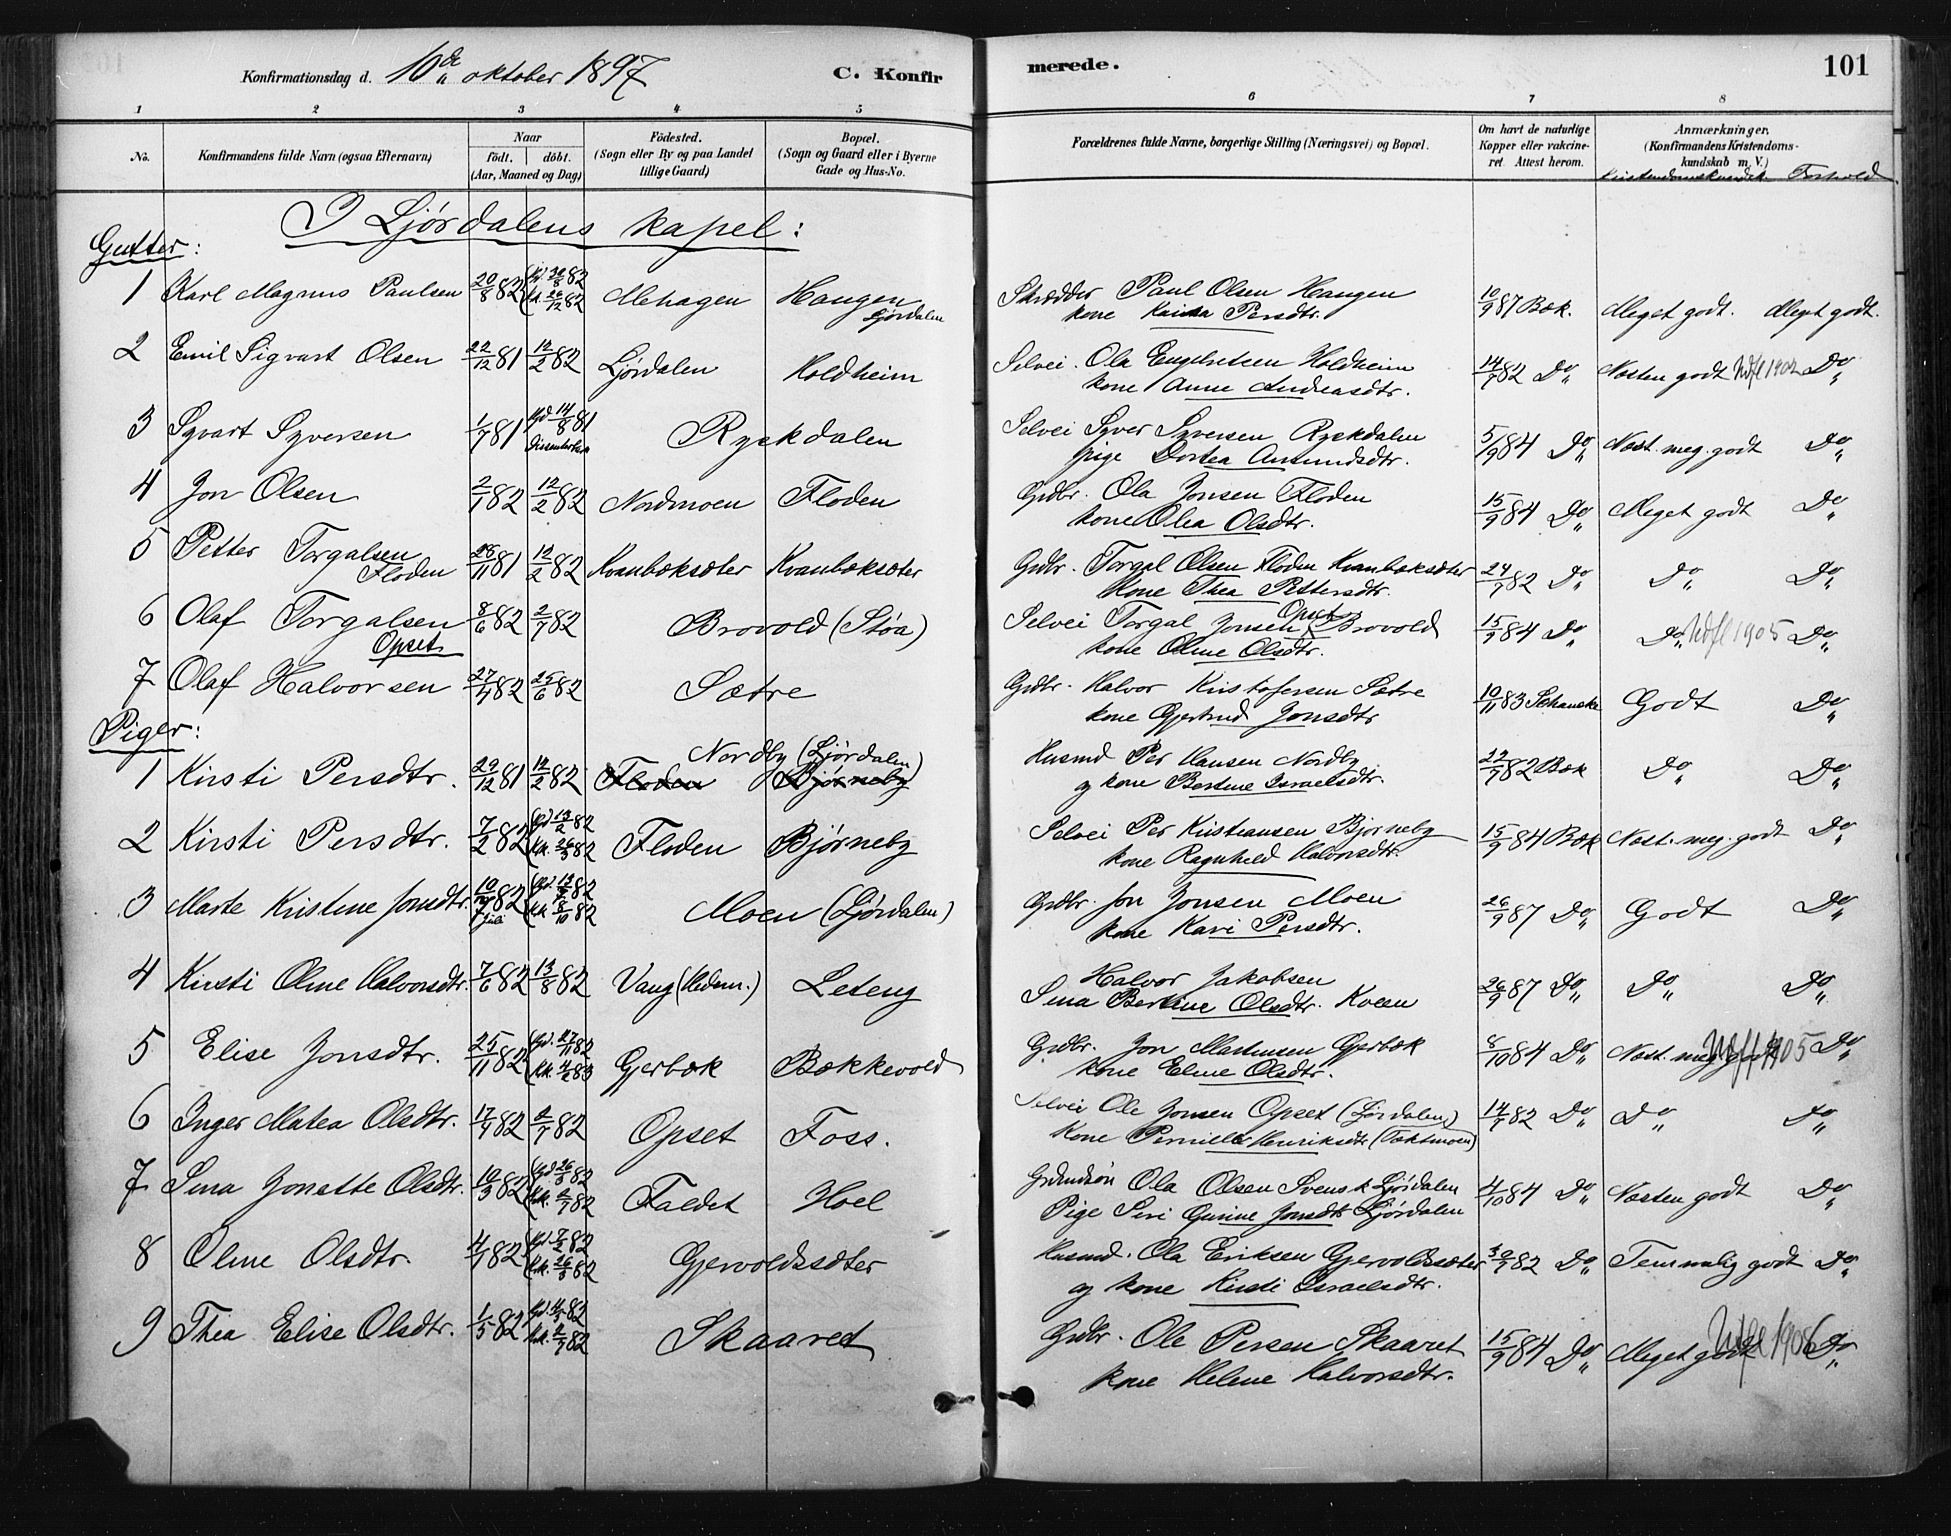 Konfirmationsdag d. 10de oktober 1897 C. Konfir
1 2 3 4 5
No. Konfirmandens fulde Navn (ogsaa Efternavn) Naar födt. döbt. (Aar, Maaned og Dag) Födested. (Sogn eller By og paa Landet tillige Gaard) Bopæl. (Sogn og Gaard eller i Byerne Gade og Hus-No.
I Ljørdalens kapel:
Gutter:
1 Karl Magnus Paulsen 20/8 82 82 26/12 82 Mehagen Haugen Ljørdalen
2 Emil Sigvart Olsen 22/12 81 12/2 82 Ljørdalen Holdheim
3 Syvart Syversen 1/7 81 14/8 81 Ryskdalen
4 Jon Olsen 2/1 82 12/2 82 Nordmoen Floden
5 Petter Torgalsen Floden 28/11 81 12/2 82 Kvanbæksæter Kvanbæksæter
6 Olaf Torgalsen Opset 8/6 82 2/7 82 Brovold (Støa)
7 Olaf Halvorsen 27/4 82 25/6 82 Sætre
Piger:
Nordby (Ljørdalen)
1 Kirsti Persdtr. 29/12 81 12/2 82 Floden Bjørneby
2 Kirsti Persdtr. 7/2 82 Gd. 13/2 82 Kk. 26/3 82 Floden Bjørneby
3 Marte Kristine Jonsdtr. 10/7 82 juli Kk. 8/10 82 Moen (Ljørdalen)
4 Kirsti Oline Halvorsdtr. 7/6 82 13/8 82 Vang (Hedem.) Leteng
5 Elise Jonsdtr. 25/11 82 Gd. 27/11 82 Kk. 83 Gjerbæk Bækkevold
6 Inger Matea Olsdtr. 17/4 82 2/7 82 Opset Foss.
7 Sina Jonette Olsdtr. 10/3 82 Gd. 26/3 82 Kk. 2/7 82 Faldet Hoel
8 Oline Olsdtr. 4/1 82 82 Kk. 26/3 82 Gjervoldssæter
9 Thea Elise Olsdtr. 1/5 82 82 Kk. 2/7 82 Skaaret
merede. 101
6 7 8
Forældrenes fulde Navne, borgerlige Stilling (Næringsvei) og Bopæl. Om havt de naturlige Kopper eller vakcineret. Attest herom. Anmærkninger, (Konfirmandens Kristendomskundskab m. V.)
Kristendomskundsk. Forhold
Skrædder Paul Olsen Haugen 10/9 87 Bæk. Meget godt. Meget godt.
kone Persdtr.
Selvei. Ola Engebretsen Holdheim 14/7 82 Do Næsten godt Udfl 1902 Do
kone Anne Andreasdtr.
Selvei Syver Syversen Ryskdalen 5/9 84 Do Næst. meg. godt Do
pige Dortea Amundsdtr.
Grdbr. Ola Jonsen Floden 15/9 84 Do Meget godt Do
kone Olea Olsdtr.
Grdbr. Torgal Olsen Floden Kvanbæksæter 24/7 82 Do Do Do
Kone Thea Pettersdtr.
Selvei Torgal Jonsen Opset Brovold 15/9 84 Do Do Udfl 1905 Do
kone Oline Olsdtr.
Grdbr. Halvor Kristofersen Sætre 10/11 83 Schanche Godt Do
kone Gjertrud Jonsdtr
Husmd Per Hansen Nordby 82 Bæk Do Do
og kone Bertine Israelsdtr.
Selvei Per Kristiansen Bjørneby 15/9 84 Bæk Næst. meg. godt Do
kone Ragnhild Halvorsdtr.
Grdbr. Jon Jonsen Moen 26/9 87 Do Godt Do
kone Kari Persdtr.
Halvor Jakobsen 26/9 87 Do Do Do
Sina Bertine Olsdtr. Kveen
Grdbr. Jon Martinsen Gjerbæk 8/10 84 Do Næst. meg. godt Udfl 1905 Do
kone Eline Olsdtr.
Selvei Ole Jonsen Opset (Ljørdalen) 14/7 82 Do Do Do
Kone Pernille Henriksdtr.
Grdmdsøn Ola Olsen Svensk Ljørdalen 4/10 84 Do Næsten godt Do
Pige Siri Gurine Jonsdtr Ljørdalen
Husmd. Ola Eriksen Gjervoldssæter 82 Do Temmelig godt Do
og kone Kirsti Israelsdtr.
Grdbr. Ole Persen Skaaret 15/9 84 Do Meget godt Udfl 1906 Do
kone Helene Halvorsdtr.